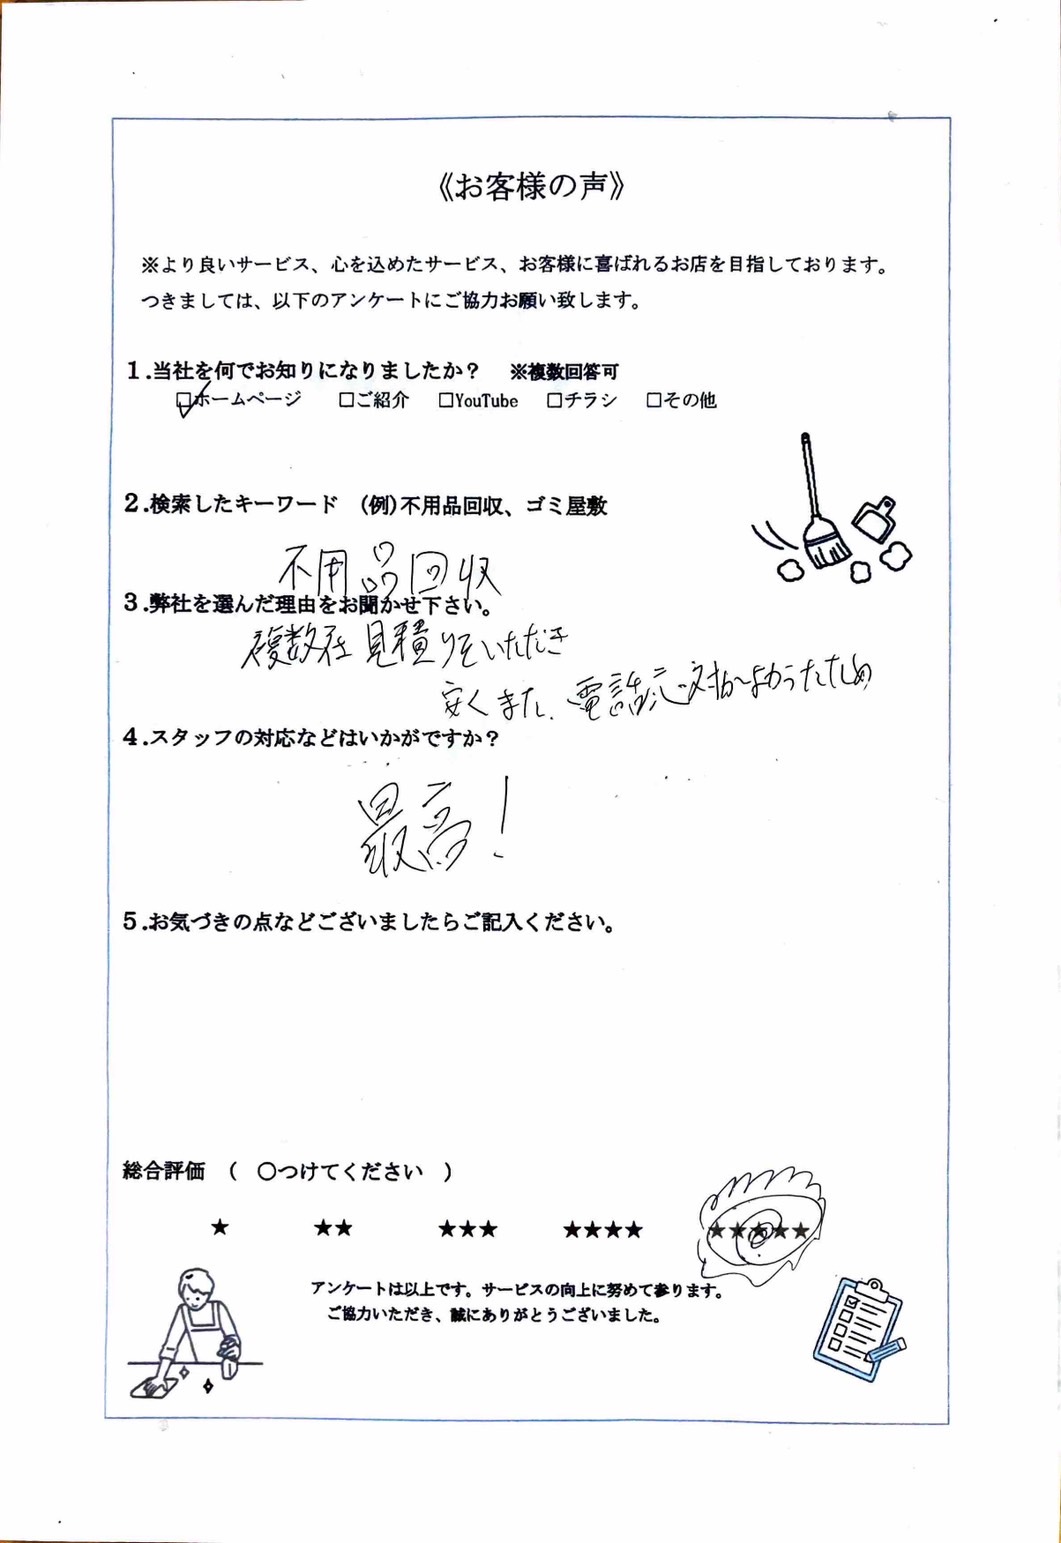 《お客様の声》
※より良いサービス、心を込めたサービス、お客様に喜ばれるお店を目指しております。
つきましては、以下のアンケートにご協力お願い致します。
1.当社を何でお知りになりましたか？　※複数回答可
☑ホームページ　□ご紹介　□YouTube　□チラシ　□その他
2.検索したキーワード　(例)不用品回収、ゴミ屋敷
不用品回収
3.弊社を選んだ理由をお聞かせ下さい。
複数社見積りをいただき
安くまた、電話応対がよかったため
4.スタッフの対応などはいかがですか？
最高！
5.お気づきの点などございましたらご記入ください。
総合評価　(　〇つけてください　)
★　★★　★★★　★★★★　★★★★★
アンケートは以上です。サービスの向上に努めて参ります。
ご協力いただき、誠にありがとうございました。